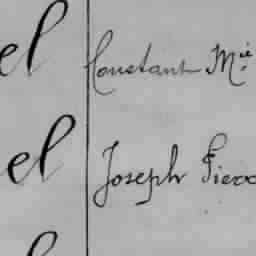 el Constant M.ie
el Joseph Pierr